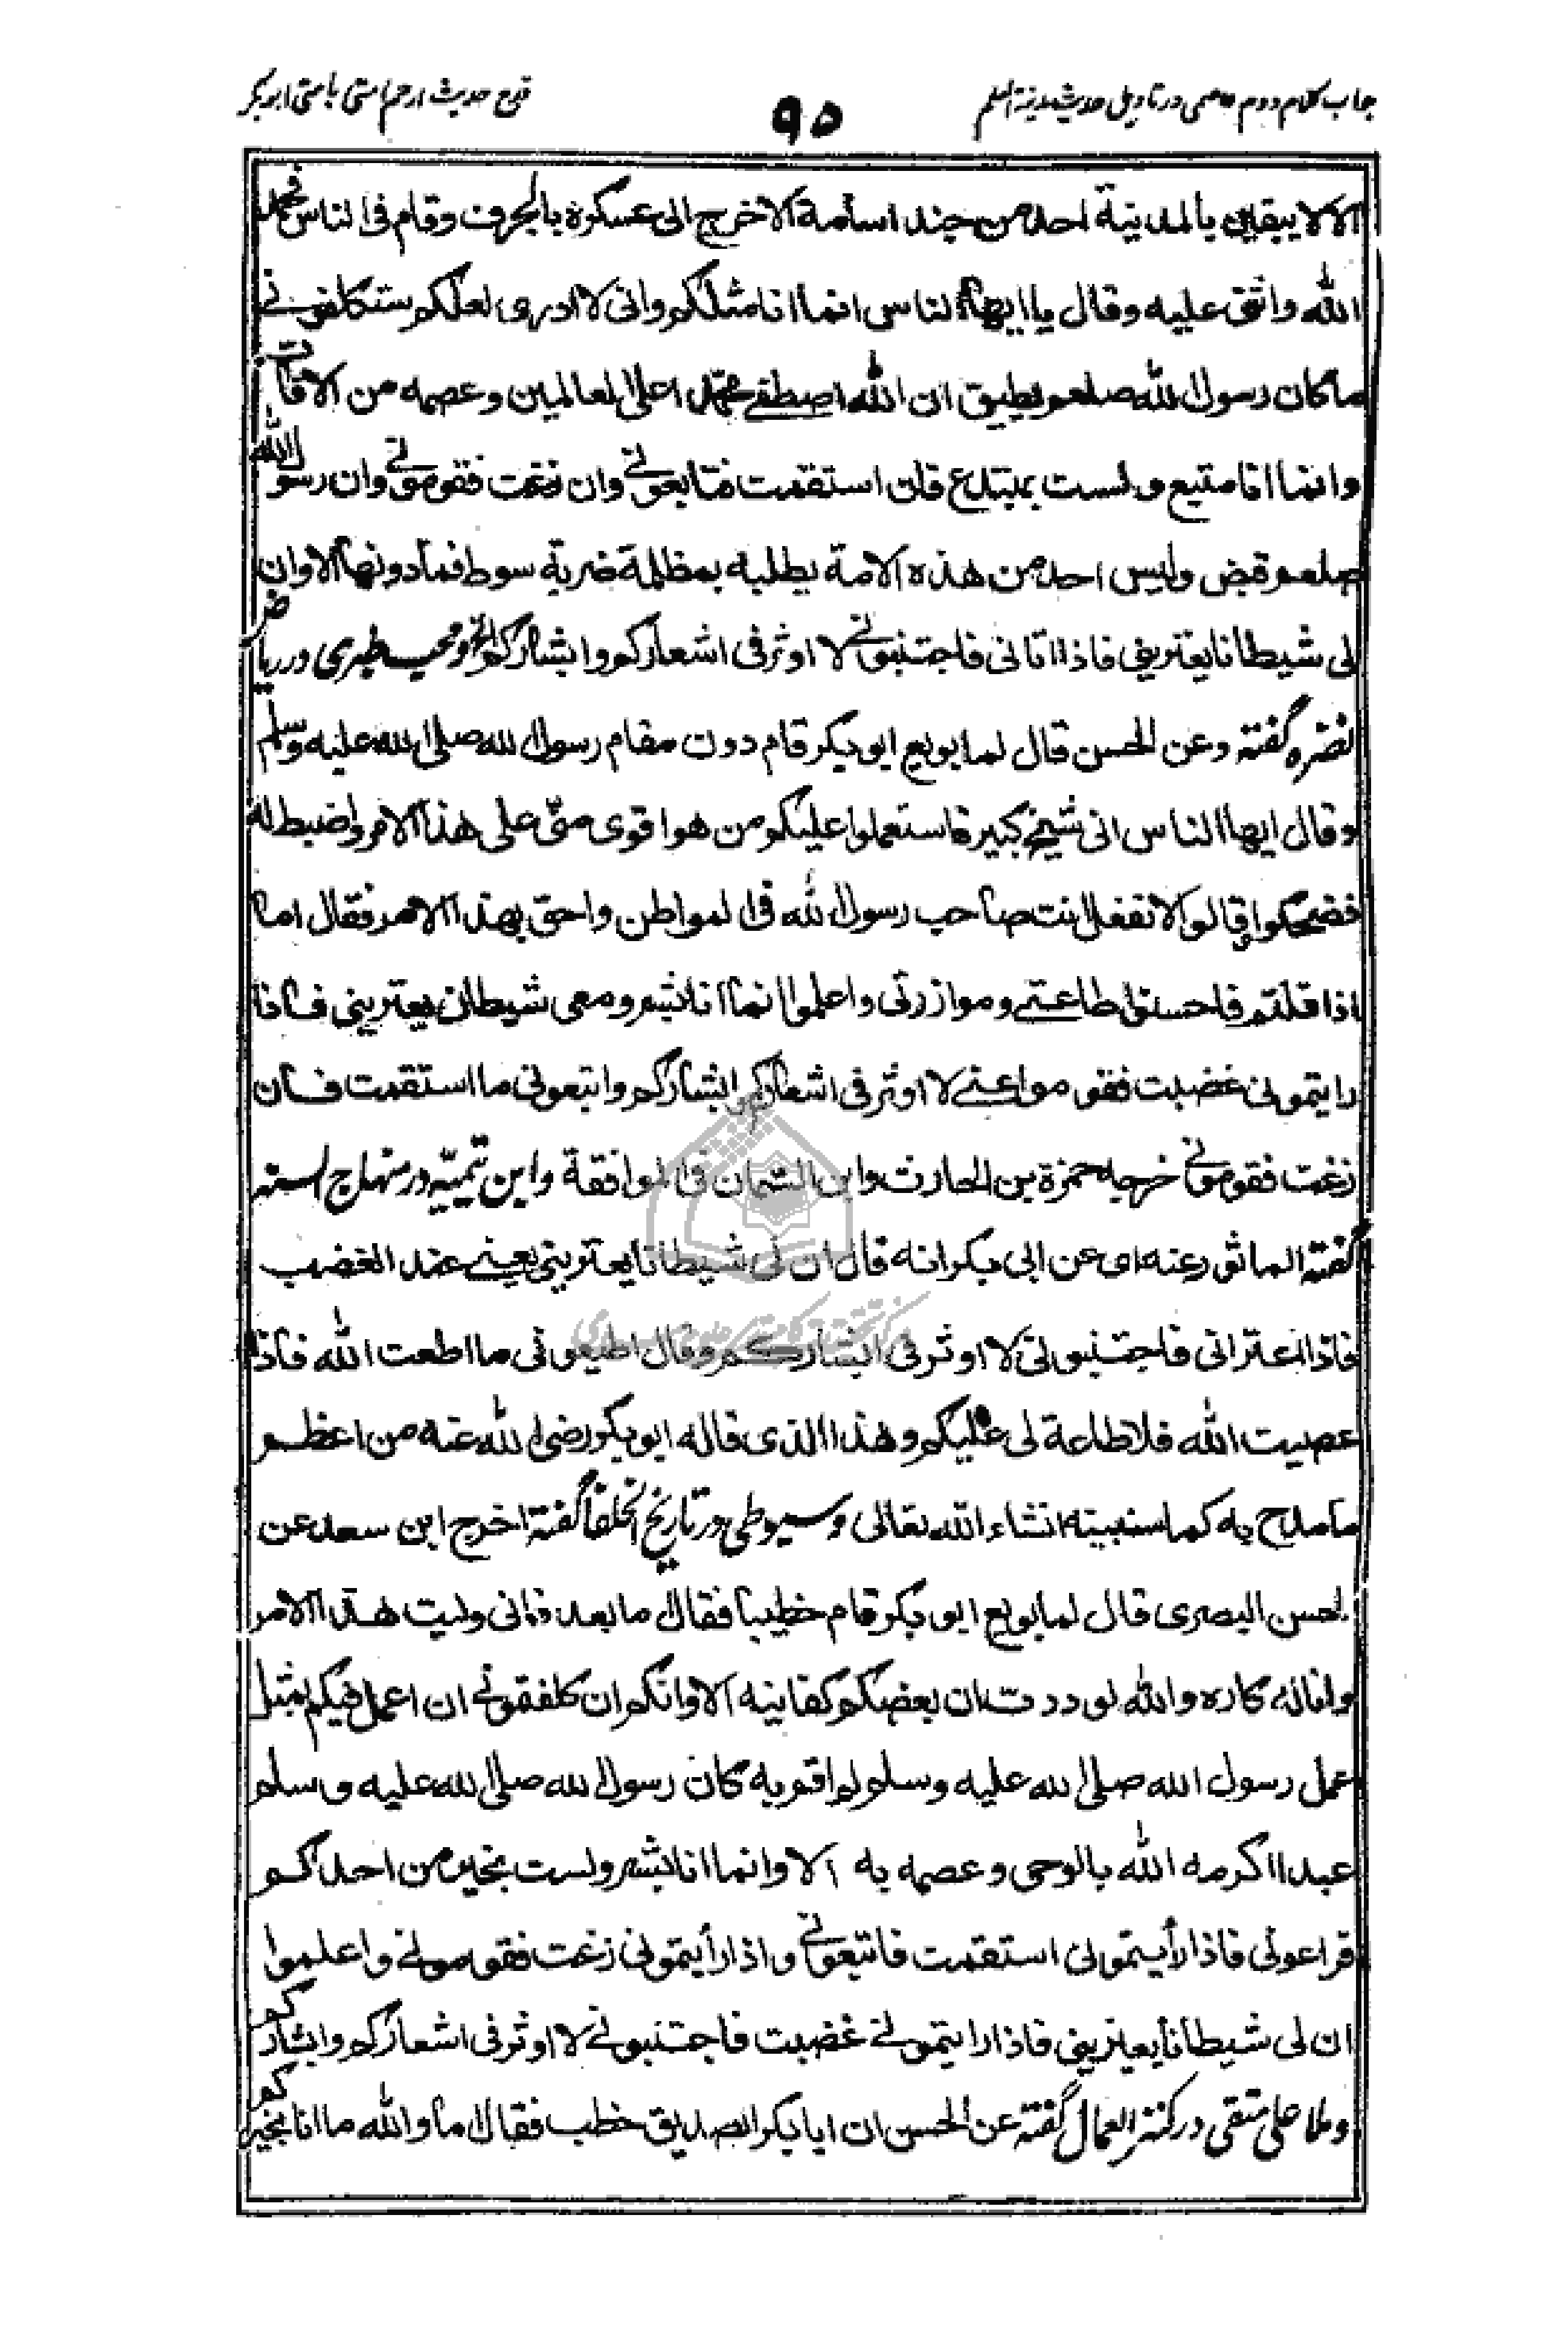 جواب کلام دوم عاصمی در تاویل حدیث مدینة العلم
۹۵
قدح حدیث ارحم امتی بامتی ابوبکر
الا لا یبقین بالمدینة احد من جند اسامة الا خرج الی عسکره بالجرف وقام فی الناس فحمد
الله واثنی علیه وقال یا ایها الناس انما انا مثلکم وانی لا ادری لعلکم ستکلفونی
ما کان رسول الله صلعم یطیق ان الله اصطفی محمدا علی العالمین وعصمه من الافات
وانما انا متبع ولست بمبتدع فان استقمت فتابعونی وان زغت فقومونی وان رسول الله
صلعم قبض ولیس احد من هذه الامة یطلبه بمظلمة ضربة سوط فما دونها الا وان
لی شیطانا یعترینی فاذا اتانی فاجتنبونی لا اوثر فی اشعارکم وابشارکم الخ ومحب طبری در ریاض
نضره گفته وعن الحسن قال لما بویع ابو بکر قام دون مقام رسول الله صلی الله علیه وسلم
وقال ایها الناس انی شیخ کبیر فاستعملوا علیکم من هو اقوی منی علی هذا الامر واضبط له
فضحکوا وقالوا لا نفعل انت صاحب رسول الله فی المواطن واحق بهذا الامر فقال اما
اذا قلتم فاحسنوا طاعتی وموازرتی واعلموا انما انا بشر ومعی شیطان یعترینی فاذا
رایتمونی غضبت فقوموا عنی لا اوثر فی اشعارکم وابشارکم واتبعونی ما استقمت فان
زغت فقومونی خرجه حمزة بن الحارث وابن السمان فی الموافقة وابن تیمیّه در منهاج السنه
گفته الماثور عنه ای عن ابی بکر انه قال ان لی شیطانا یعترینی یعنی عند الغضب
فاذا اعترانی فاجتنبونی لا اوثر فی ابشارکم وقال اطیعونی ما اطعت الله فاذا
عصیت الله فلا طاعة لی علیکم وهذا الذی قاله ابو بکر رضی الله عنه من اعظم
ما مدح به کما سنبینه انشاء الله تعالی وسیوطی در تاریخ الخلفا گفته اخرج ابن سعد عن
الحسن البصری قال لما بویع ابو بکر قام خطیبا فقال ما بعد فانی ولیت هذا الامر
وانا له کاره والله لوددت ان بعضکم کفانیه الا وانکم ان کلفتمونی ان اعمل فیکم بمثل
عمل رسول الله صلی الله علیه وسلم لم اقم به کان رسول الله صلی الله علیه وسلم
عبدا اکرمه الله بالوحی وعصمه به الا وانما انا بشر ولست بخیر من احدکم
فراعونی فاذا رأیتمونی استقمت فاتبعونی واذا رأیتمونی زغت فقومونی واعلموا
ان لی شیطانا یعترینی فاذا رایتمونی غضبت فاجتنبونی لا اوثر فی اشعارکم وابشارکم
وملا علی متقی در کنز العمال گفته عن الحسن ان ابا بکر الصدیق خطب فقال اما والله ما انا بخیرکم